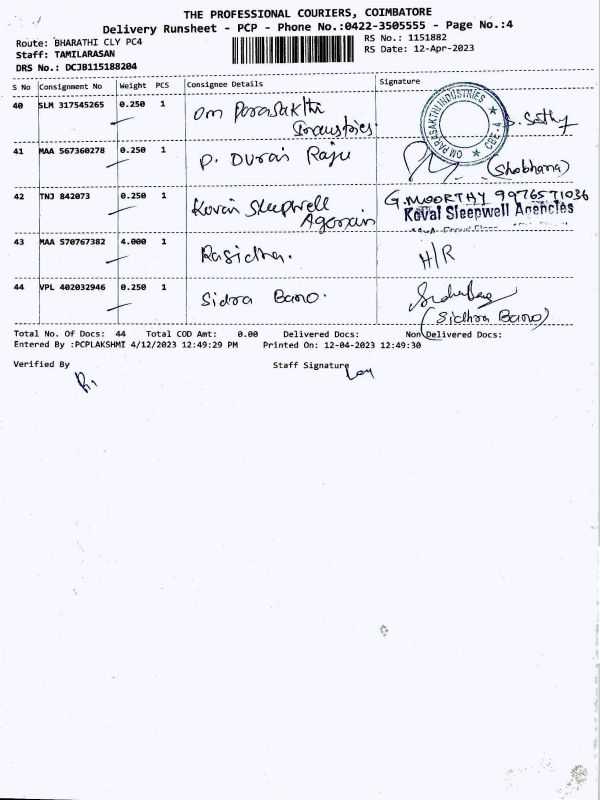 THE PROFESSIONAL COURIERS, COIMBATORE
Delivery Runsheet - PCP - Phone No.:0422-3505555 - Page No.:4
Route: BHARATHI CLY PC4
RS No.: 1151882
Staff: TAMILARASAN
RS Date: 12-Apr-2023
DRS No.: DCJB115188204
S No Consignment No Weight PCS Consignee Details Signature
40 SLM 317545265 0.250 1 Om Parasakthi
Industries
OM PARASAKTHI INDUSTRIES ★ CBE-4 ★
S. Sathy
41 MAA 567360278 0.250 1 P. Durai Raju
(Shobhana)
42 TNJ 842073 0.250 1 Kovai Sleepwell
G. MOORTHY 9976571036
Koval Sleepwell Agencies
43 MAA 570767382 4.000 1 Rasidha.
H/R
44 VPL 402032946 0.250 1 Sidra Bano.
(Sidhra Bano)
Total No. Of Docs: 44 Total COD Amt: 0.00 Delivered Docs: Non Delivered Docs:
Entered By :PCPLAKSHMI 4/12/2023 12:49:29 PM Printed On: 12-04-2023 12:49:30
Verified By Staff Signature